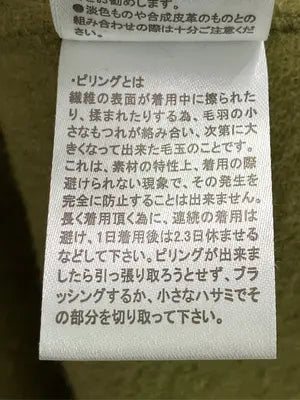 お勧めします。
●淡色ものや合成皮革のものとの
組み合わせの際は十分ご注意くだ
さい。
・ピリングとは
繊維の表面が着用中に擦られた
り、揉まれたりする為、毛羽の小
さなもつれが絡み合い、次第に大
きくなって出来た毛玉のことです。
これは、素材の特性上、着用の際
避けられない現象で、その発生を
完全に防止することは出来ません。
長く着用頂く為に、連続の着用は
避け、1日着用後は2.3日休ませる
などして下さい。ピリングが出来ま
したら引っ張り取ろうとせず、ブラ
ッシングするか、小さなハサミでそ
の部分を切り取って下さい。